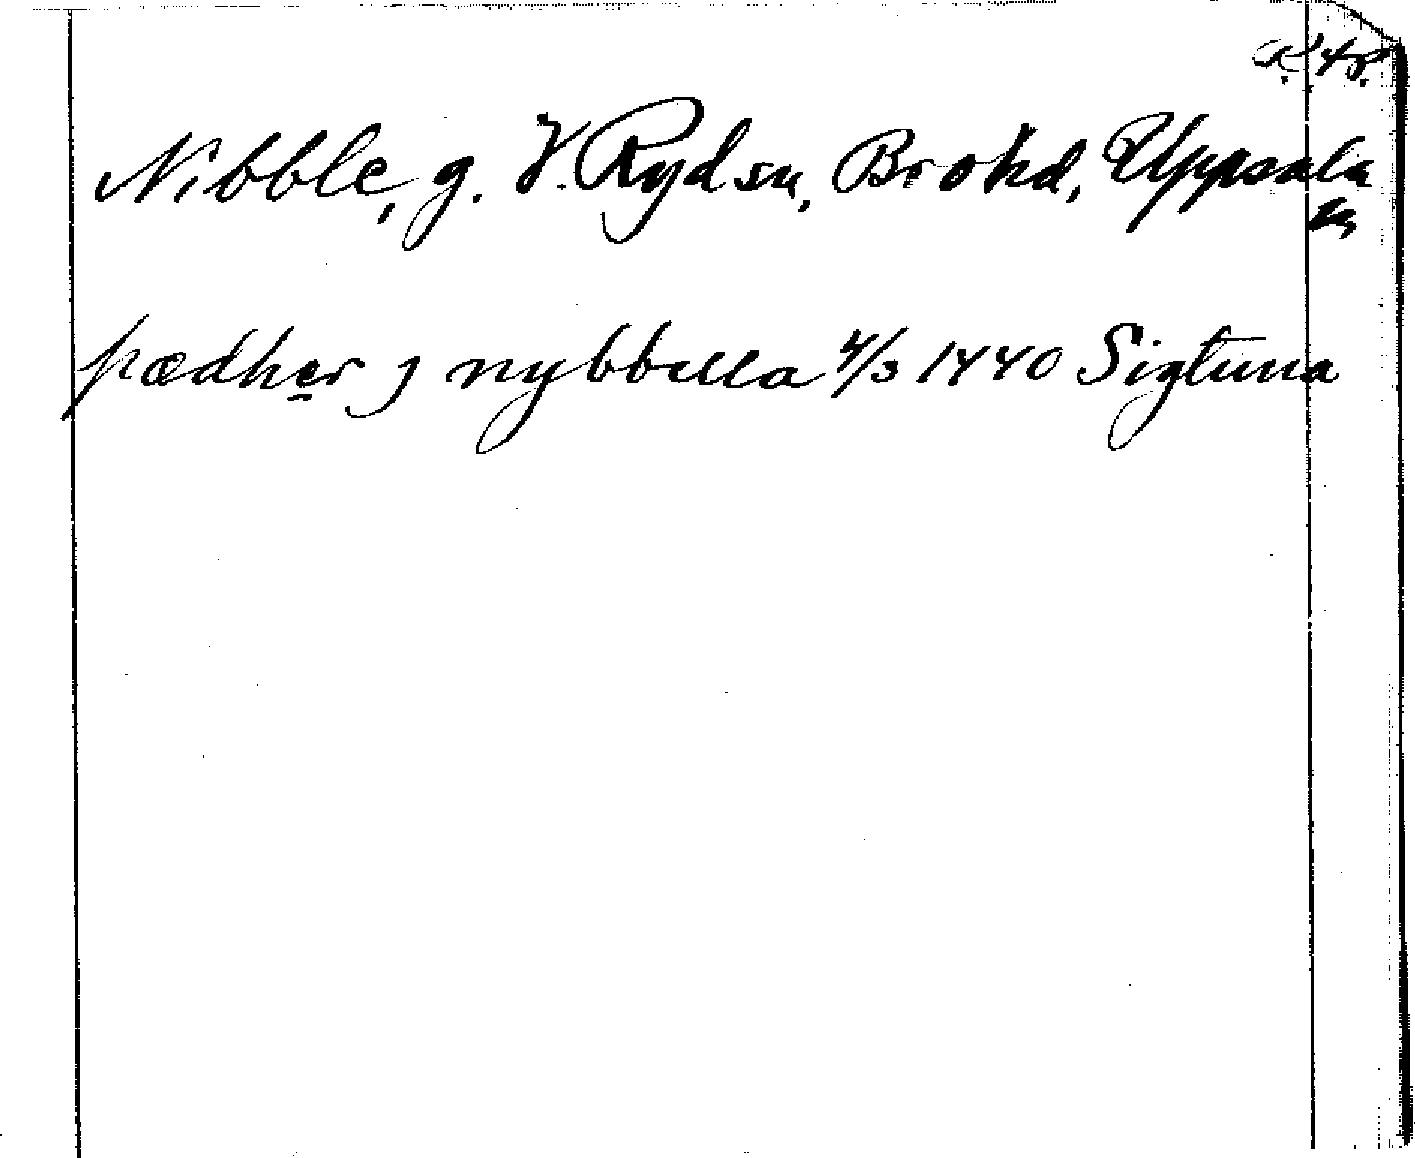 Nibble, g. V. Ryd sn, Bro hd, Uppsala
län
pædher j nybbella 4/3 1440 Sigtuna